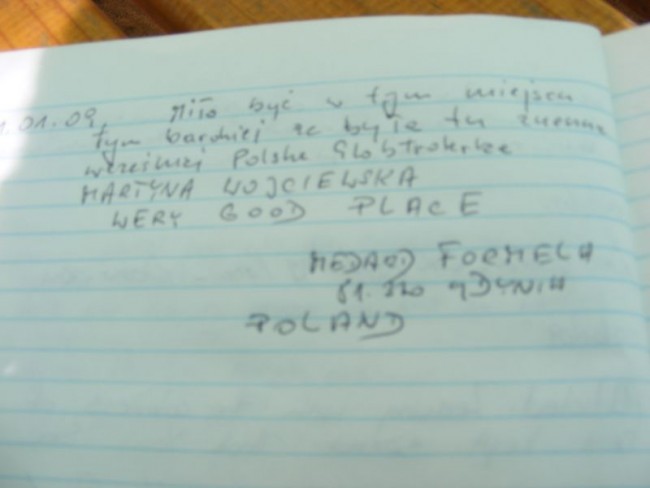 .01.09. Miło być w tym miejscu
tym bardziej że była tu znana
wcześniej Polska Globtroterka
MARTYNA WOJCIEWSKA
WERY GOOD PLACE
MEDARD FORMELA
GDYNIA
POLAND